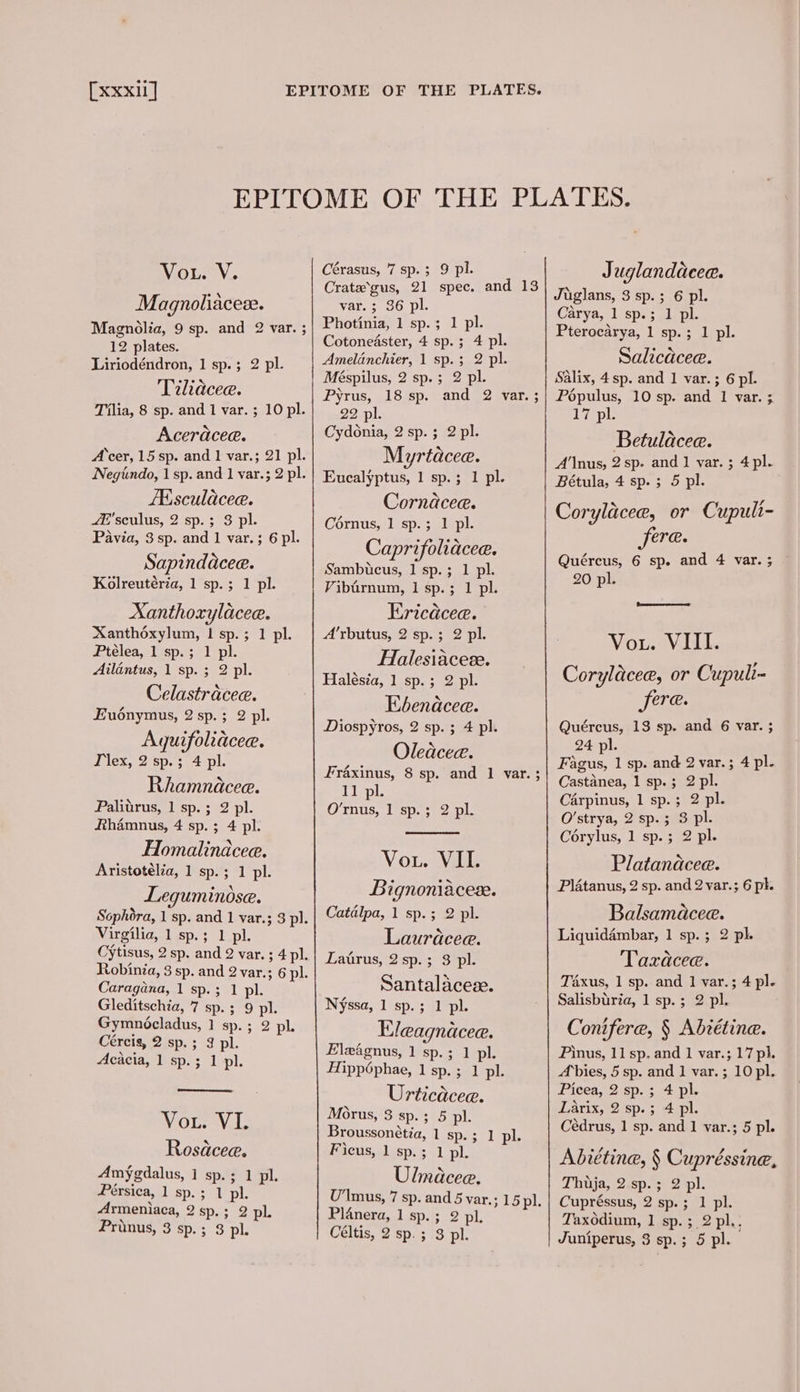 [xxxii] EPITOME OF THE PLATES.
EPITOME OF THE PLATES.
Vol. V.
Magnoliàceæ.
Magnòlia, 9 sp. and 2 var.;
12 plates.
Liriodéndron, 1 sp.; 2 pl.
Tiliàceæ.
Tília, 8 sp. and 1 var.; 10 pl.
Aceràceæ.
A`cer, 15 sp. and 1 var.; 21 pl.
Negúndo, 1 sp. and 1 var.; 2 pl.
Æsculàceæ.
Æ'sculus, 2 sp.; 3 pl.
Pàvia, 3 sp. and 1 var.; 6 pl.
Sapindàceæ.
Kölreutèria, 1 sp.; 1 pl.
Xanthoxylàceæ.
Xanthóxylum, 1 sp.; 1 pl.
Ptèlea, 1 sp.; 1 pl.
Ailántus, 1 sp.; 2 pl.
Celastràceæ.
Euónymus, 2 sp.; 2 pl.
Aquifoliàceæ.
I`lex, 2 sp.; 4 pl.
Rhamnàceæ.
Paliùrus, 1 sp.; 2 pl.
Rhámnus, 4 sp.; 4 pl.
Homalinàceæ.
Aristotèlia, 1 sp.; 1 pl.
Leguminòsæ.
Sophòra, 1 sp. and 1 var.; 3 pl.
Virgília, 1 sp.; 1 pl.
Cýtisus, 2 sp. and 2 var.; 4 pl.
Robínia, 3 sp. and 2 var.; 6 pl.
Caragàna, 1 sp.; 1 pl.
Gledítschia, 7 sp.; 9 pl.
Gymnócladus, 1 sp.; 2 pl.
Cércis, 2 sp.; 3 pl.
Acàcia, 1 sp.; 1 pl.
Vol. VI.
Rosàceæ.
Amýgdalus, 1 sp.; 1 pl.
Pérsica, 1 sp.; 1 pl.
Armenìaca, 2 sp.; 2 pl.
Prùnus, 3 sp.; 3 pl.
Cérasus, 7 sp.; 9 pl.
Cratæ`gus, 21 spec. and 13
var.; 36 pl.
Photínia, 1 sp.; 1 pl.
Cotoneáster, 4 sp.; 4 pl.
Amelánchier, 1 sp.; 2 pl.
Méspilus, 2 sp.; 2 pl.
Pỳrus, 18 sp. and 2 var.;
22 pl.
Cydònia, 2 sp.; 2 pl.
Myrtàceæ.
Eucalýptus, 1 sp.; 1 pl.
Cornàceæ.
Córnus, 1 sp.; 1 pl.
Caprifoliàceæ.
Sambùcus, 1 sp.; 1 pl.
Vibúrnum, 1 sp.; 1 pl.
Ericàceæ.
A'rbutus, 2 sp.; 2 pl.
Halesiàceæ.
Halèsia, 1 sp.; 2 pl.
Ebenàceæ.
Diospỳros, 2 sp.; 4 pl.
Oleàceæ.
Fráxinus, 8 sp. and 1 var.;
11 pl.
O'rnus, 1 sp.; 2 pl.
Vol. VII.
Bignoniàceæ.
Catálpa, 1 sp.; 2 pl.
Lauràceæ.
Laúrus, 2 sp.; 3 pl.
Santalàceæ.
Nýssa, 1 sp.; 1 pl.
Elæagnàceæ.
Elæágnus, 1 sp.; 1 pl.
Hippóphae, 1 sp.; 1 pl.
Urticàceæ.
Mòrus, 3 sp.; 5 pl.
Broussonètia, 1 sp.; 1 pl.
Ficus, 1 sp.; 1 pl.
Ulmàceæ.
U'lmus, 7 sp. and 5 var.; 15 pl.
Plánera, 1 sp.; 2 pl.
Céltis, 2 sp.; 3 pl.
Juglandàceæ.
Jùglans, 3 sp.; 6 pl.
Càrya, 1 sp.; 1 pl.
Pterocàrya, 1 sp.; 1 pl.
Salicàceæ.
Sàlix, 4 sp. and 1 var.; 6 pl.
Pópulus, 10 sp. and 1 var.;
17 pl.
Betulàceæ.
A'lnus, 2 sp. and 1 var.; 4 pl.
Bétula, 4 sp.; 5 pl.
Corylàceæ, or Cupuli-
feræ.
Quércus, 6 sp. and 4 var.;
20 pl.
Vol. VIII.
Corylàceæ, or Cupuli-
feræ.
Quércus, 13 sp. and 6 var.;
24 pl.
Fàgus, 1 sp. and 2 var.; 4 pl.
Castànea, 1 sp.; 2 pl.
Cárpinus, 1 sp.; 2 pl.
O'strya, 2 sp.; 3 pl.
Córylus, 1 sp.; 2 pl.
Platanàceæ.
Plátanus, 2 sp. and 2 var.; 6 pl.
Balsamàceæ.
Liquidámbar, 1 sp.; 2 pl.
Taxàceæ.
Táxus, 1 sp. and 1 var.; 4 pl.
Salisbùria, 1 sp.; 2 pl.
Coníferæ, § Abiétinæ.
Pìnus, 11 sp. and 1 var.; 17 pl.
A`bies, 5 sp. and 1 var.; 10 pl.
Pícea, 2 sp.; 4 pl.
Làrix, 2 sp.; 4 pl.
Cèdrus, 1 sp. and 1 var.; 5 pl.
Abiétinæ, § Cupréssinæ.
Thùja, 2 sp.; 2 pl.
Cupréssus, 2 sp.; 1 pl.
Taxòdium, 1 sp.; 2 pl.
Juníperus, 3 sp.; 5 pl.